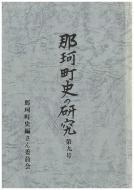 那珂町史の研究
第九号
那珂町史編さん委員会